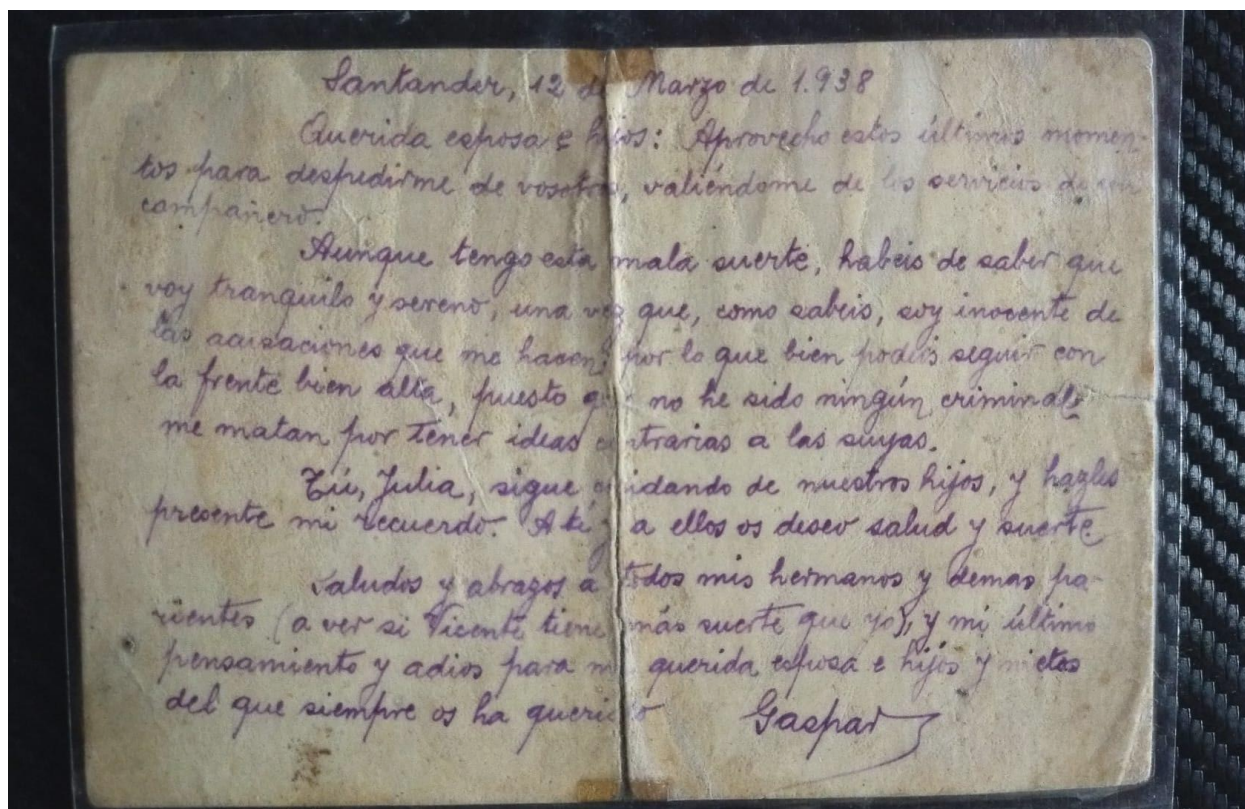 Santander, 12 de Marzo de 1.938
Querida esposa e hijos: Aprovecho estos últimos momen-
tos para despedirme de vosotros, valiéndome de los servicios de un
compañero.
Aunque tengo esta mala suerte, habeis de saber que
voy tranquilo y sereno, una vez que, como sabeis, soy inocente de
las acusaciones que me hacen; por lo que bien podeis seguir con
la frente bien alta, puesto que no he sido ningún criminal:
me matan por tener ideas contrarias a las suyas.
Tú, Julia, sigue cuidando de nuestros hijos, y hazles
presente mi recuerdo. A tí y a ellos os deseo salud y suerte
Saludos y abrazos a todos mis hermanos y demas pa-
rientes (a ver si Vicente tiene más suerte que yo), y mi último
pensamiento y adios para mi querida esposa e hijos y nietos
del que siempre os ha querido Gaspar